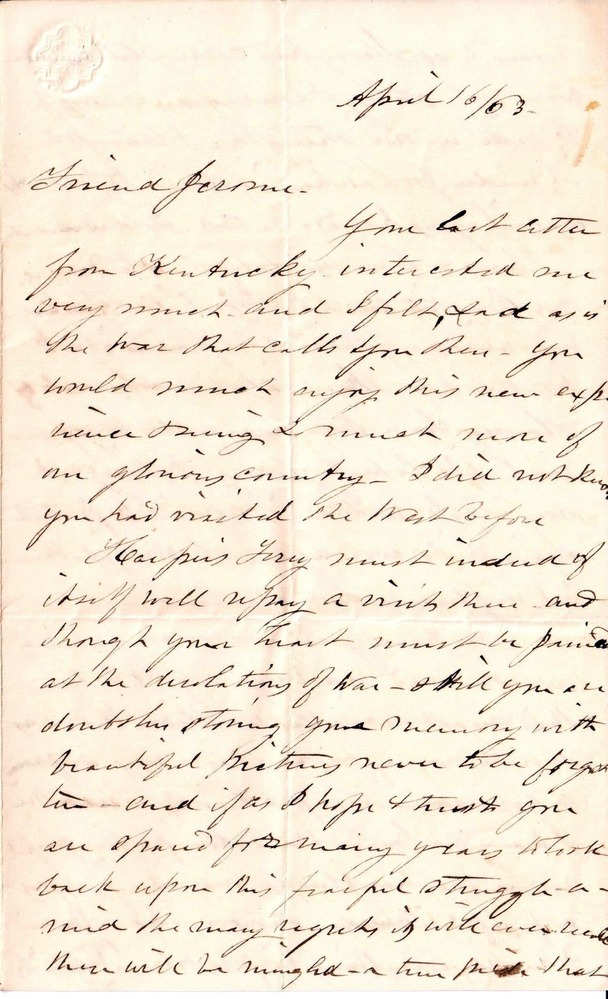 April 16/63-
Friend Jerome-
Your last letter
from Kentucky interested me
very much. and I felt, sad as is
the war that calls you there - you
would much enjoy this new expe
rience & seeing so much more of
our glorious country - I did not know
you had visited the West before
Harpers Ferry must indeed of
itself well repay a visit there and
though your heart must be pained
at the desolations of war - still you are
doubtless storing your memory with
beautiful pictures never to be forgot
ten - and if as I hope & trust you
are spared for many years to look
back upon this fearful struggle - a-
mid the many regrets it will ever recall
there will be mingled - a true pride that